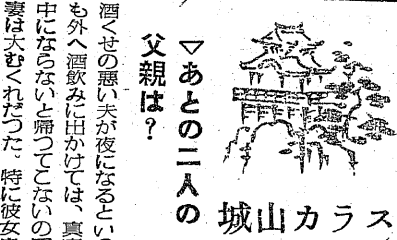 城山カラス
▽あとの二人の
父親は?
酒くせの悪い夫が夜になるとい
も外へ酒飲みに出かけては、真
中にならないと帰つてこないの
妻は大むくれだつた。特に彼女